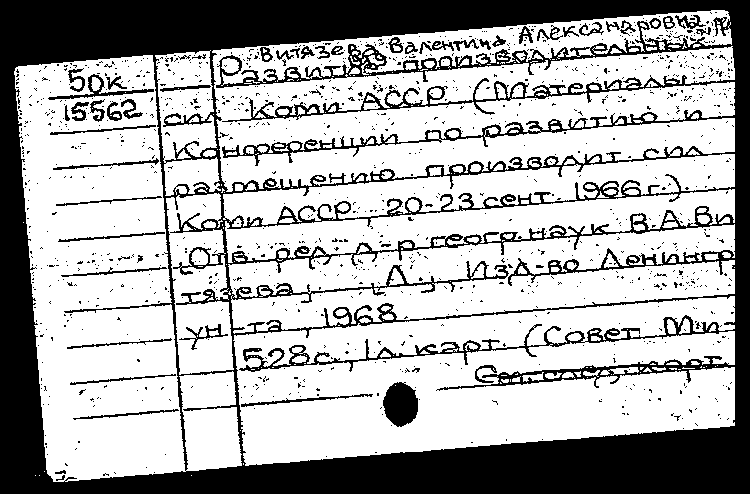 Витязева Валентина Александровна
50к
Развитие производительных
15562
сил Коми АССР (Материалы
Конференции по развитию и
размещению производит. сил
Коми АССР, 20-23 сент. 1966 г.).
[Отв. ред. д-р геогр. наук В.А. Ви-
тязева]. [Л.], Изд-во Ленингр.
ун-та, 1968.
528 с.; 1 л. карт. (Совет Ми-
См. след. карт.